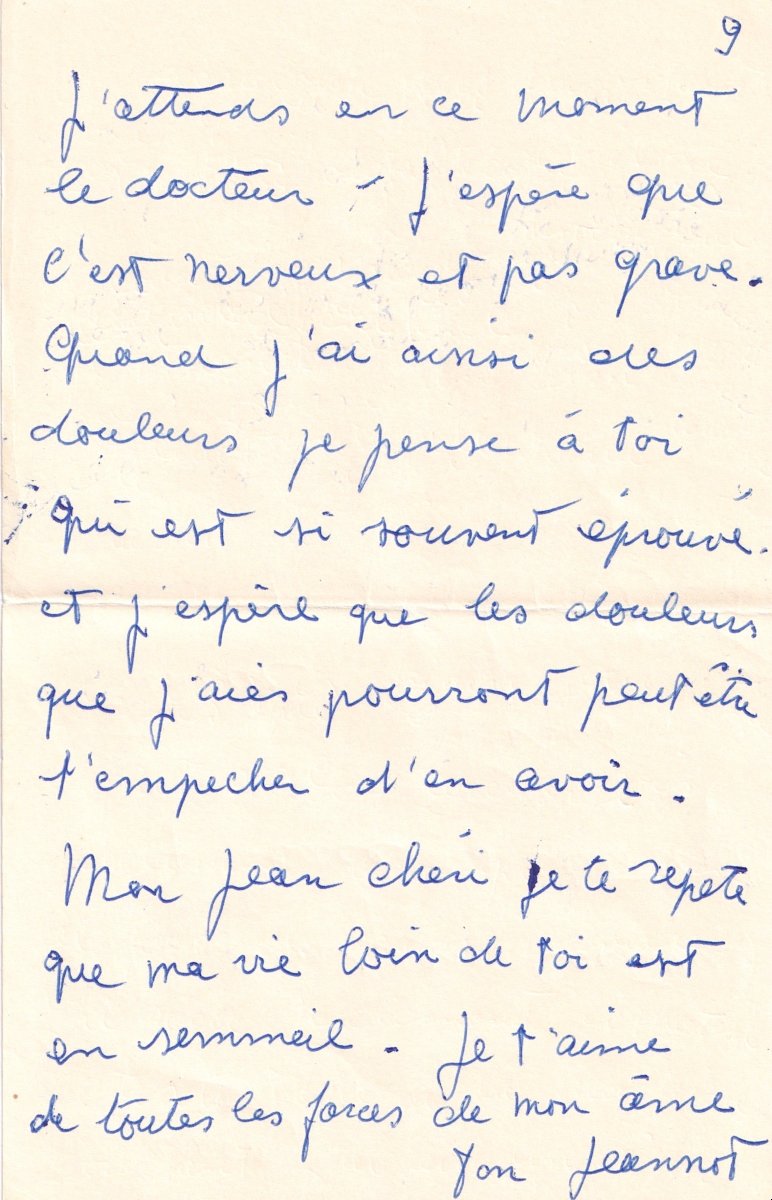 9
J'attends en ce moment
le docteur - J'espère que
c'est nerveux et pas grave.
Quand j'ai ainsi des
douleurs je pense à toi
qui est si souvent éprouvé.
et j'espère que les douleurs
que j'aies pourront peut être
t'empecher d'en avoir.
Mon Jean chéri je te repete
que ma vie loin de toi est
en sommeil. Je t'aime
de toutes les forces de mon âme
Ton Jeannot